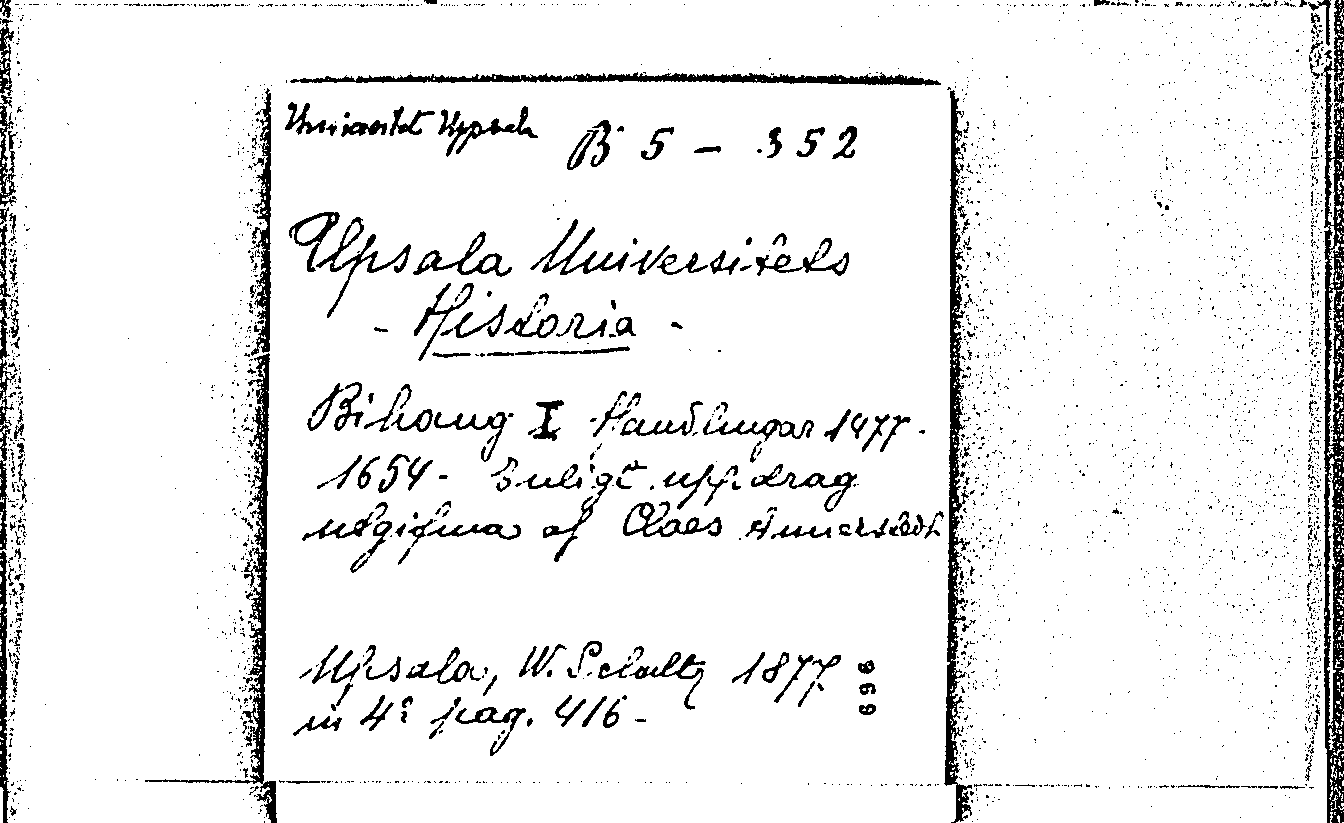 Universitet Uppsala B 5 - 352
Upsala Universitets
- Historia -
Bihang I Handlingar 1477-
1654- Enligt uppdrag
utgifna af Claes Annerstedt
Upsala, W. Schultz 1877
in 4º pag. 416-
696